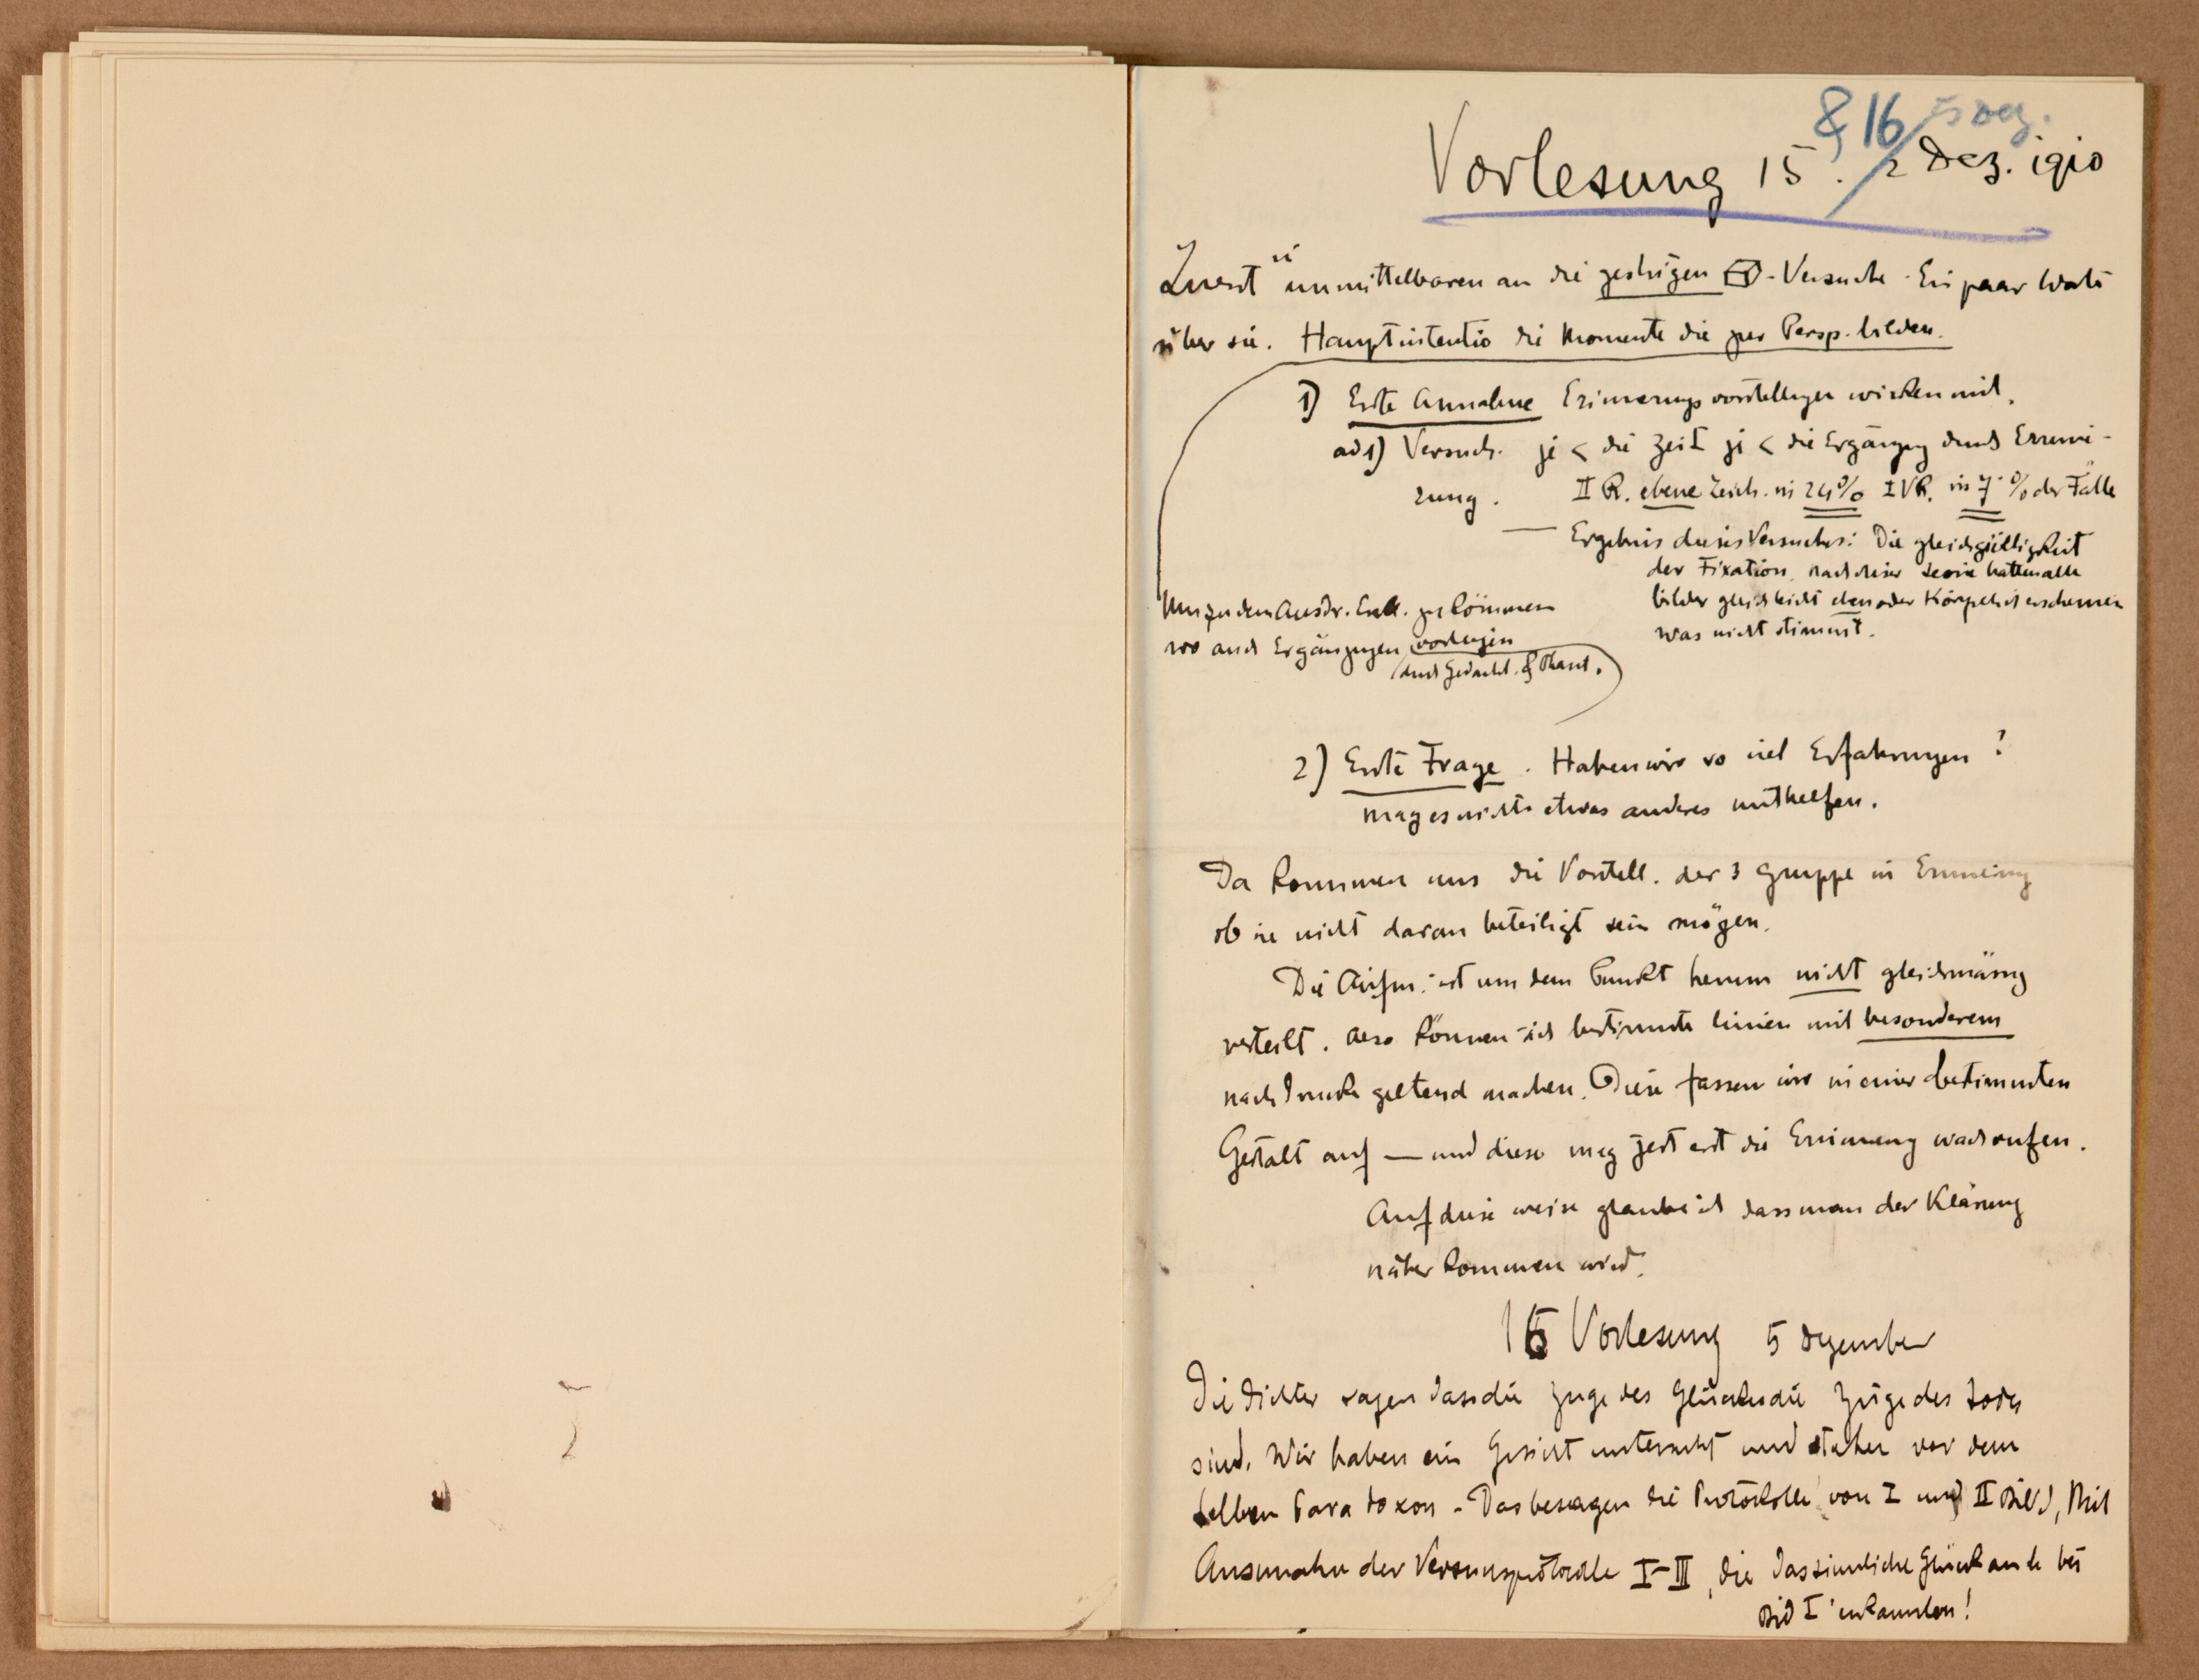 & 16 5 Dez.
Vorlesung 15. / 2 Dez. 1910
Zuerst unmittelbaren an die gestrigen -Versuche. Ein paar Worte
über sie. Hauptintentio die Momente die zur Persp. bilden.
1) Erste Annahme Erinnerungsvorstellungen wirken mit.
ad 1) Versuch. je < die Zeit je < die Ergänzung durch Erinne-
rung. II R. ebene Zeich. in 24% IV R. in 7% der Fälle
— Ergebnis dieses Versuches: Die gleichgültigkeit
der Fixation, nach dieser hatten alle
bilder gleich leicht eben oder Körperlich erscheinen
was nicht stimmt.
Um zu dem Ausdr. zu kommen
wo auch Ergänzungen vorliegen
durch Gedächt. & Phant.
2) Erste Frage. Haben wir so viel Erfahrungen?
mag es nicht etwas anderes mithelfen.
Da kommen uns die Vorstell. der 3 Gruppe in Erinnerung
ob sie nicht daran beteiligt sein mögen.
Die Aufm. ist um dem Punkt herum nicht gleichmässig
verteilt. Also können sich bestimmte linien mit besonderem
nachdruck geltend machen. Diese fassen wir in einer bestimmten
Gestalt auf — und diese mag jetzt erst die Erinnerung wachrufen.
Auf diese weise glaube ich dass man der Klärung
näher kommen wird.
16 Vorlesung 5 Dezember
Die Dichter sagen dass die Züge des Glückes die Züge des Todes
sind. Wir haben ein Gesicht untersucht und stehen vor dem
selben Paradoxon - Das besagen die Protokolle von I und II Bild, Mit
Ausnahme der I-III, die das sinnliche Glück auch bei
Bild I erkannten!